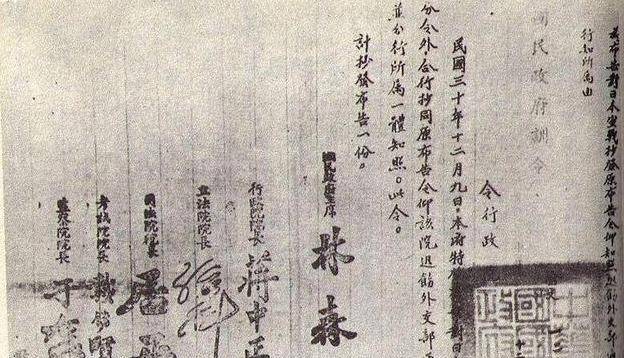 為布告對日本宣戰抄發原布告令仰知照並飭外交部
行知所屬由
國民政府訓令
令行政
民國三十年十二月九日，本府特對日
分令外，合行抄同原布告令仰該院迅飭外交部
並分行所屬一體知照。此令。
計抄發布告一份。
國民政府主席 林森
行政院院長 蔣中正
立法院院長 孫科
司法院院長 居正
考試院院長 戴傳賢
監察院院長 于右